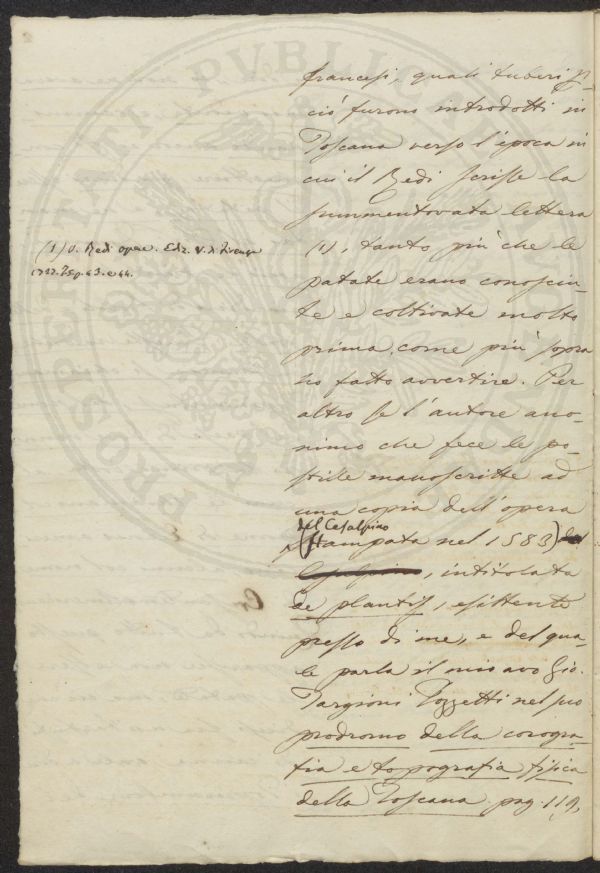 francesi, quali tuberi p-
ciò furono introdotti in
Toscana verso l'epoca in
cui il Redi scrisse la
summentovata lettera
(1), tanto più che le
patate erano conosciu-
te e coltivate molto
prima, come più sopra
ho fatto avvertire. Per
altro se l'autore ano-
nimo che fece le po-
stille manoscritte ad
una copia dell'opera
del Cesalpino
(stampata nel 1583)
Cesalpino, intitolata
de plantis, esistente
presso di me, e del qua-
le parla il mio avo Gio.
Targioni Tozzetti nel suo
prodromo della corogra-
fia e topografia fisica
della Toscana pag. 119,
(1) V. Redi opere. Ediz. V. di Firenze
p. 43. e 44.
PROSPERITATI PVBLICAE